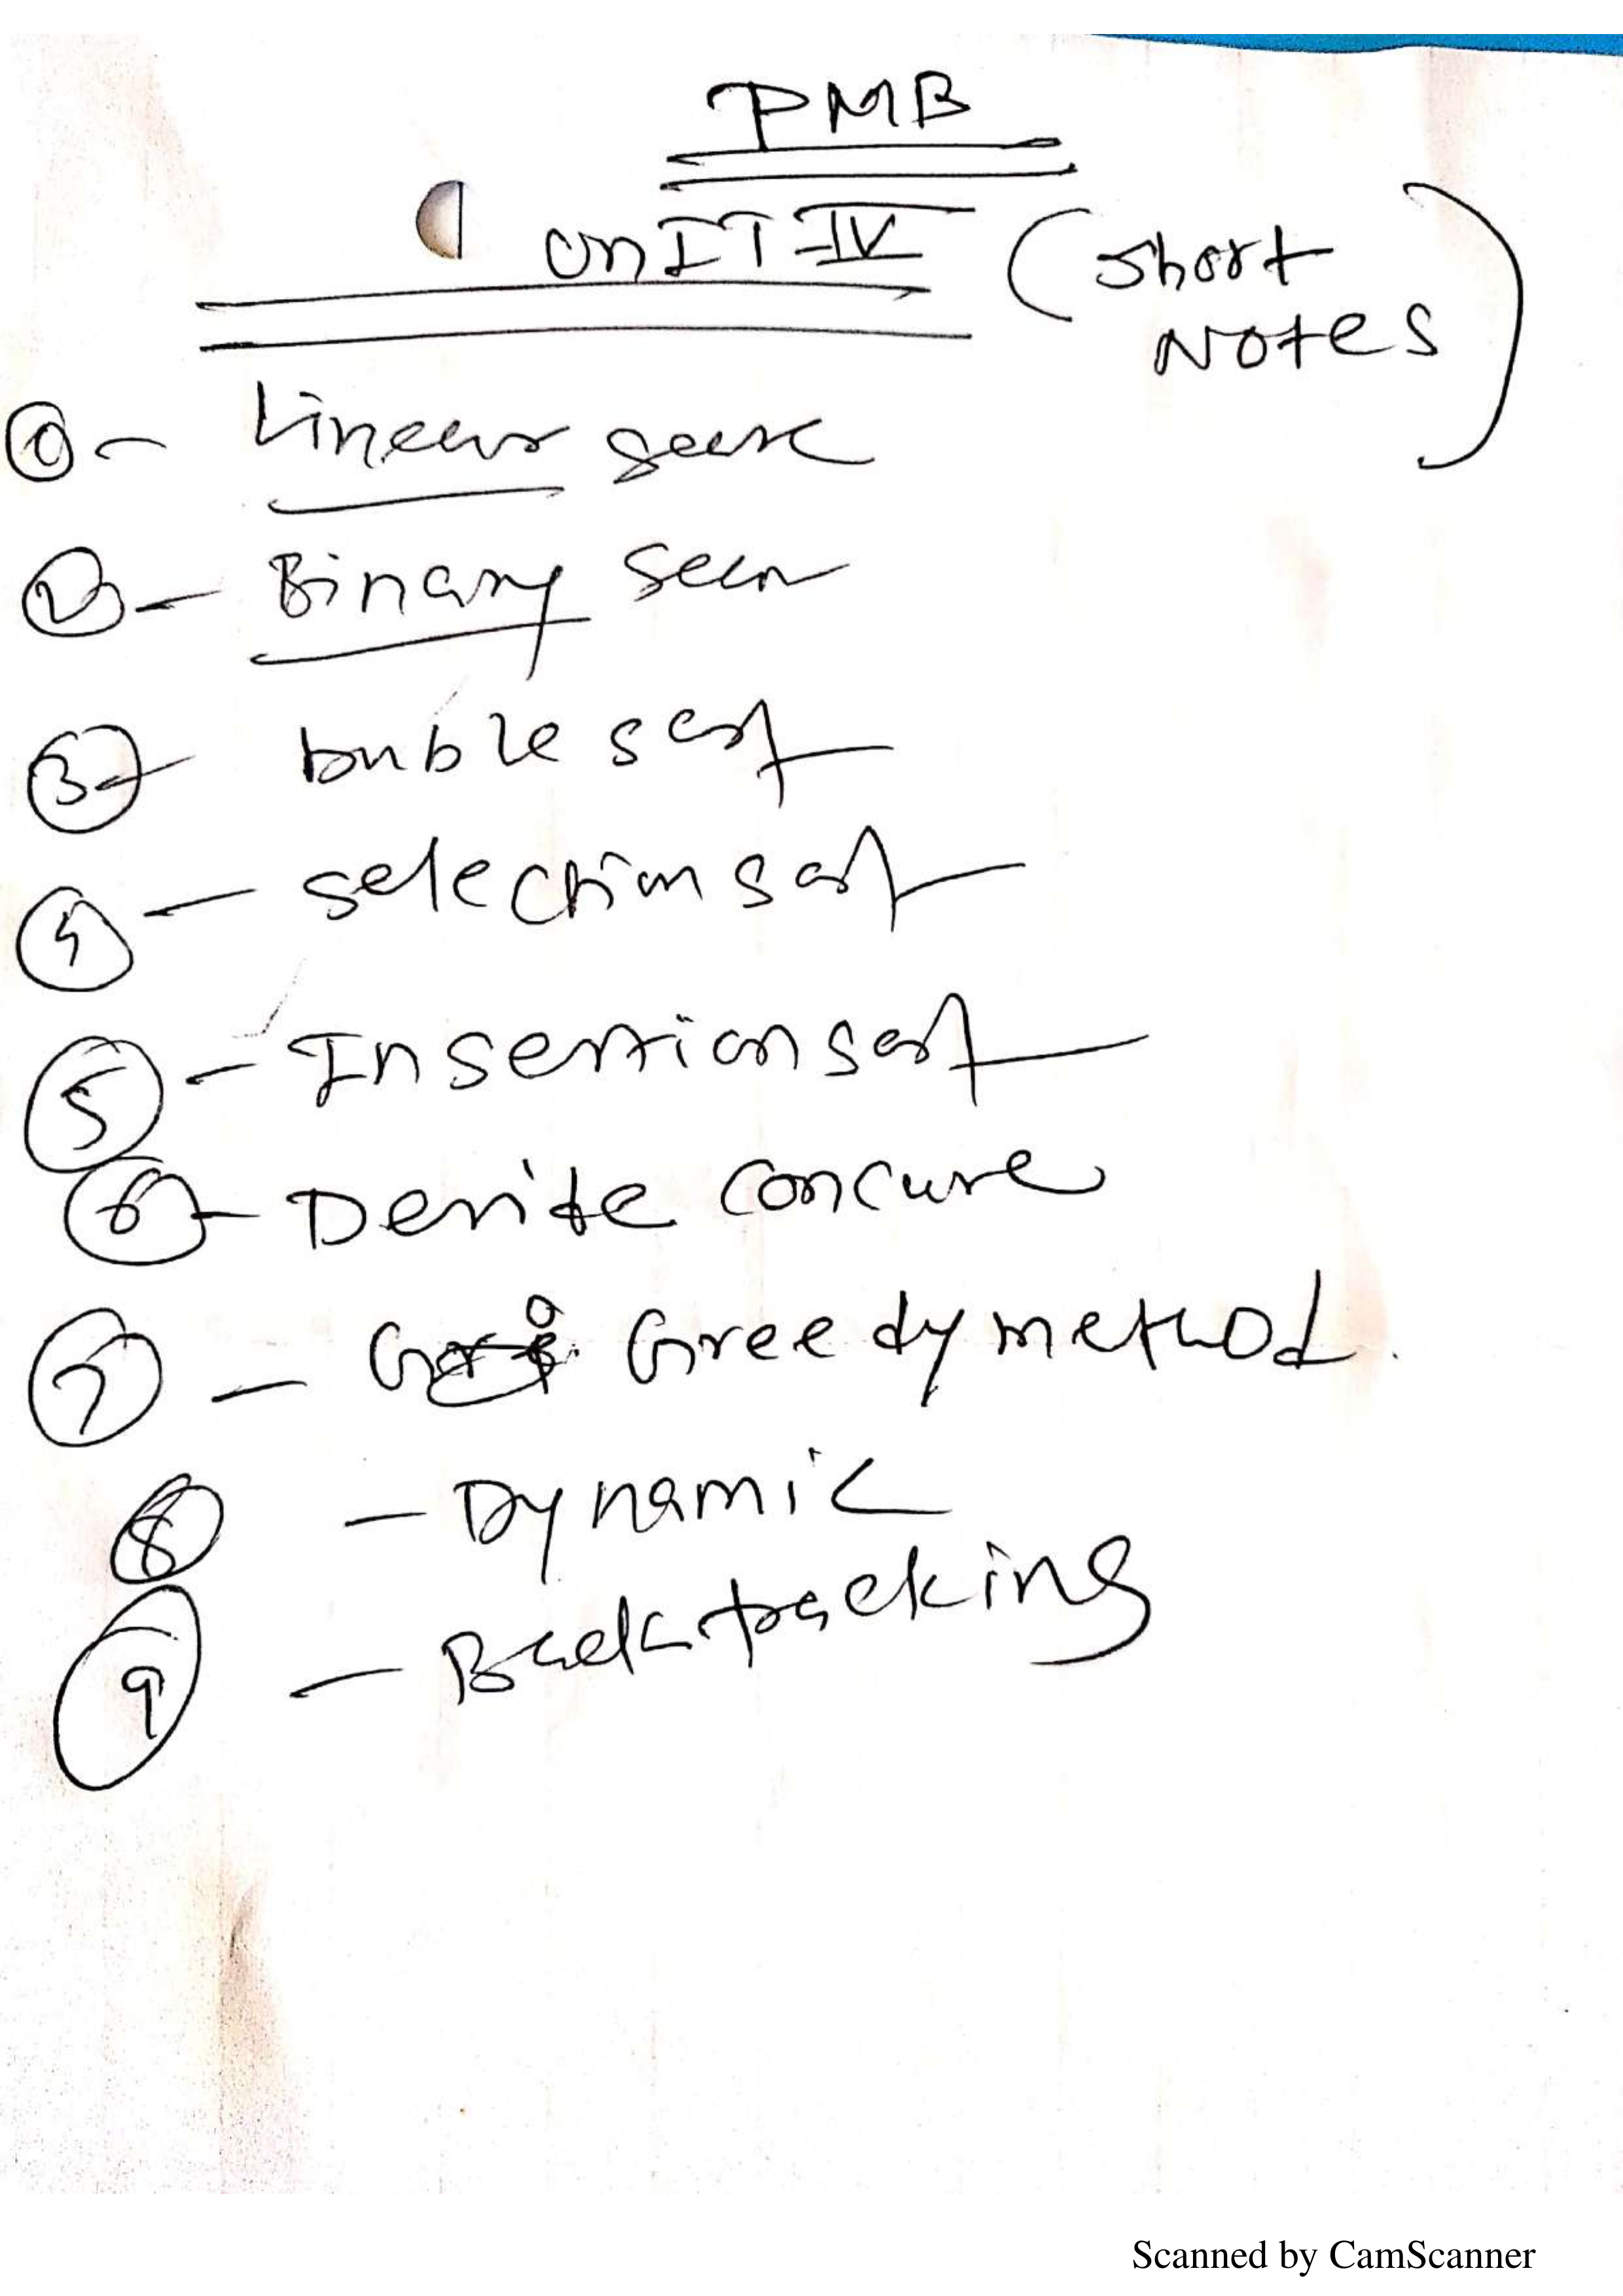 PMB
UnIT-IV (short
Notes)
① - Linear
② - Binary
③ - buble sort
④ - selection sort
⑤ - Insertion sort
⑥ - Devite concure
⑦ - Greedy method.
⑧ - Dynamic
⑨ - Backtracking
Scanned by CamScanner